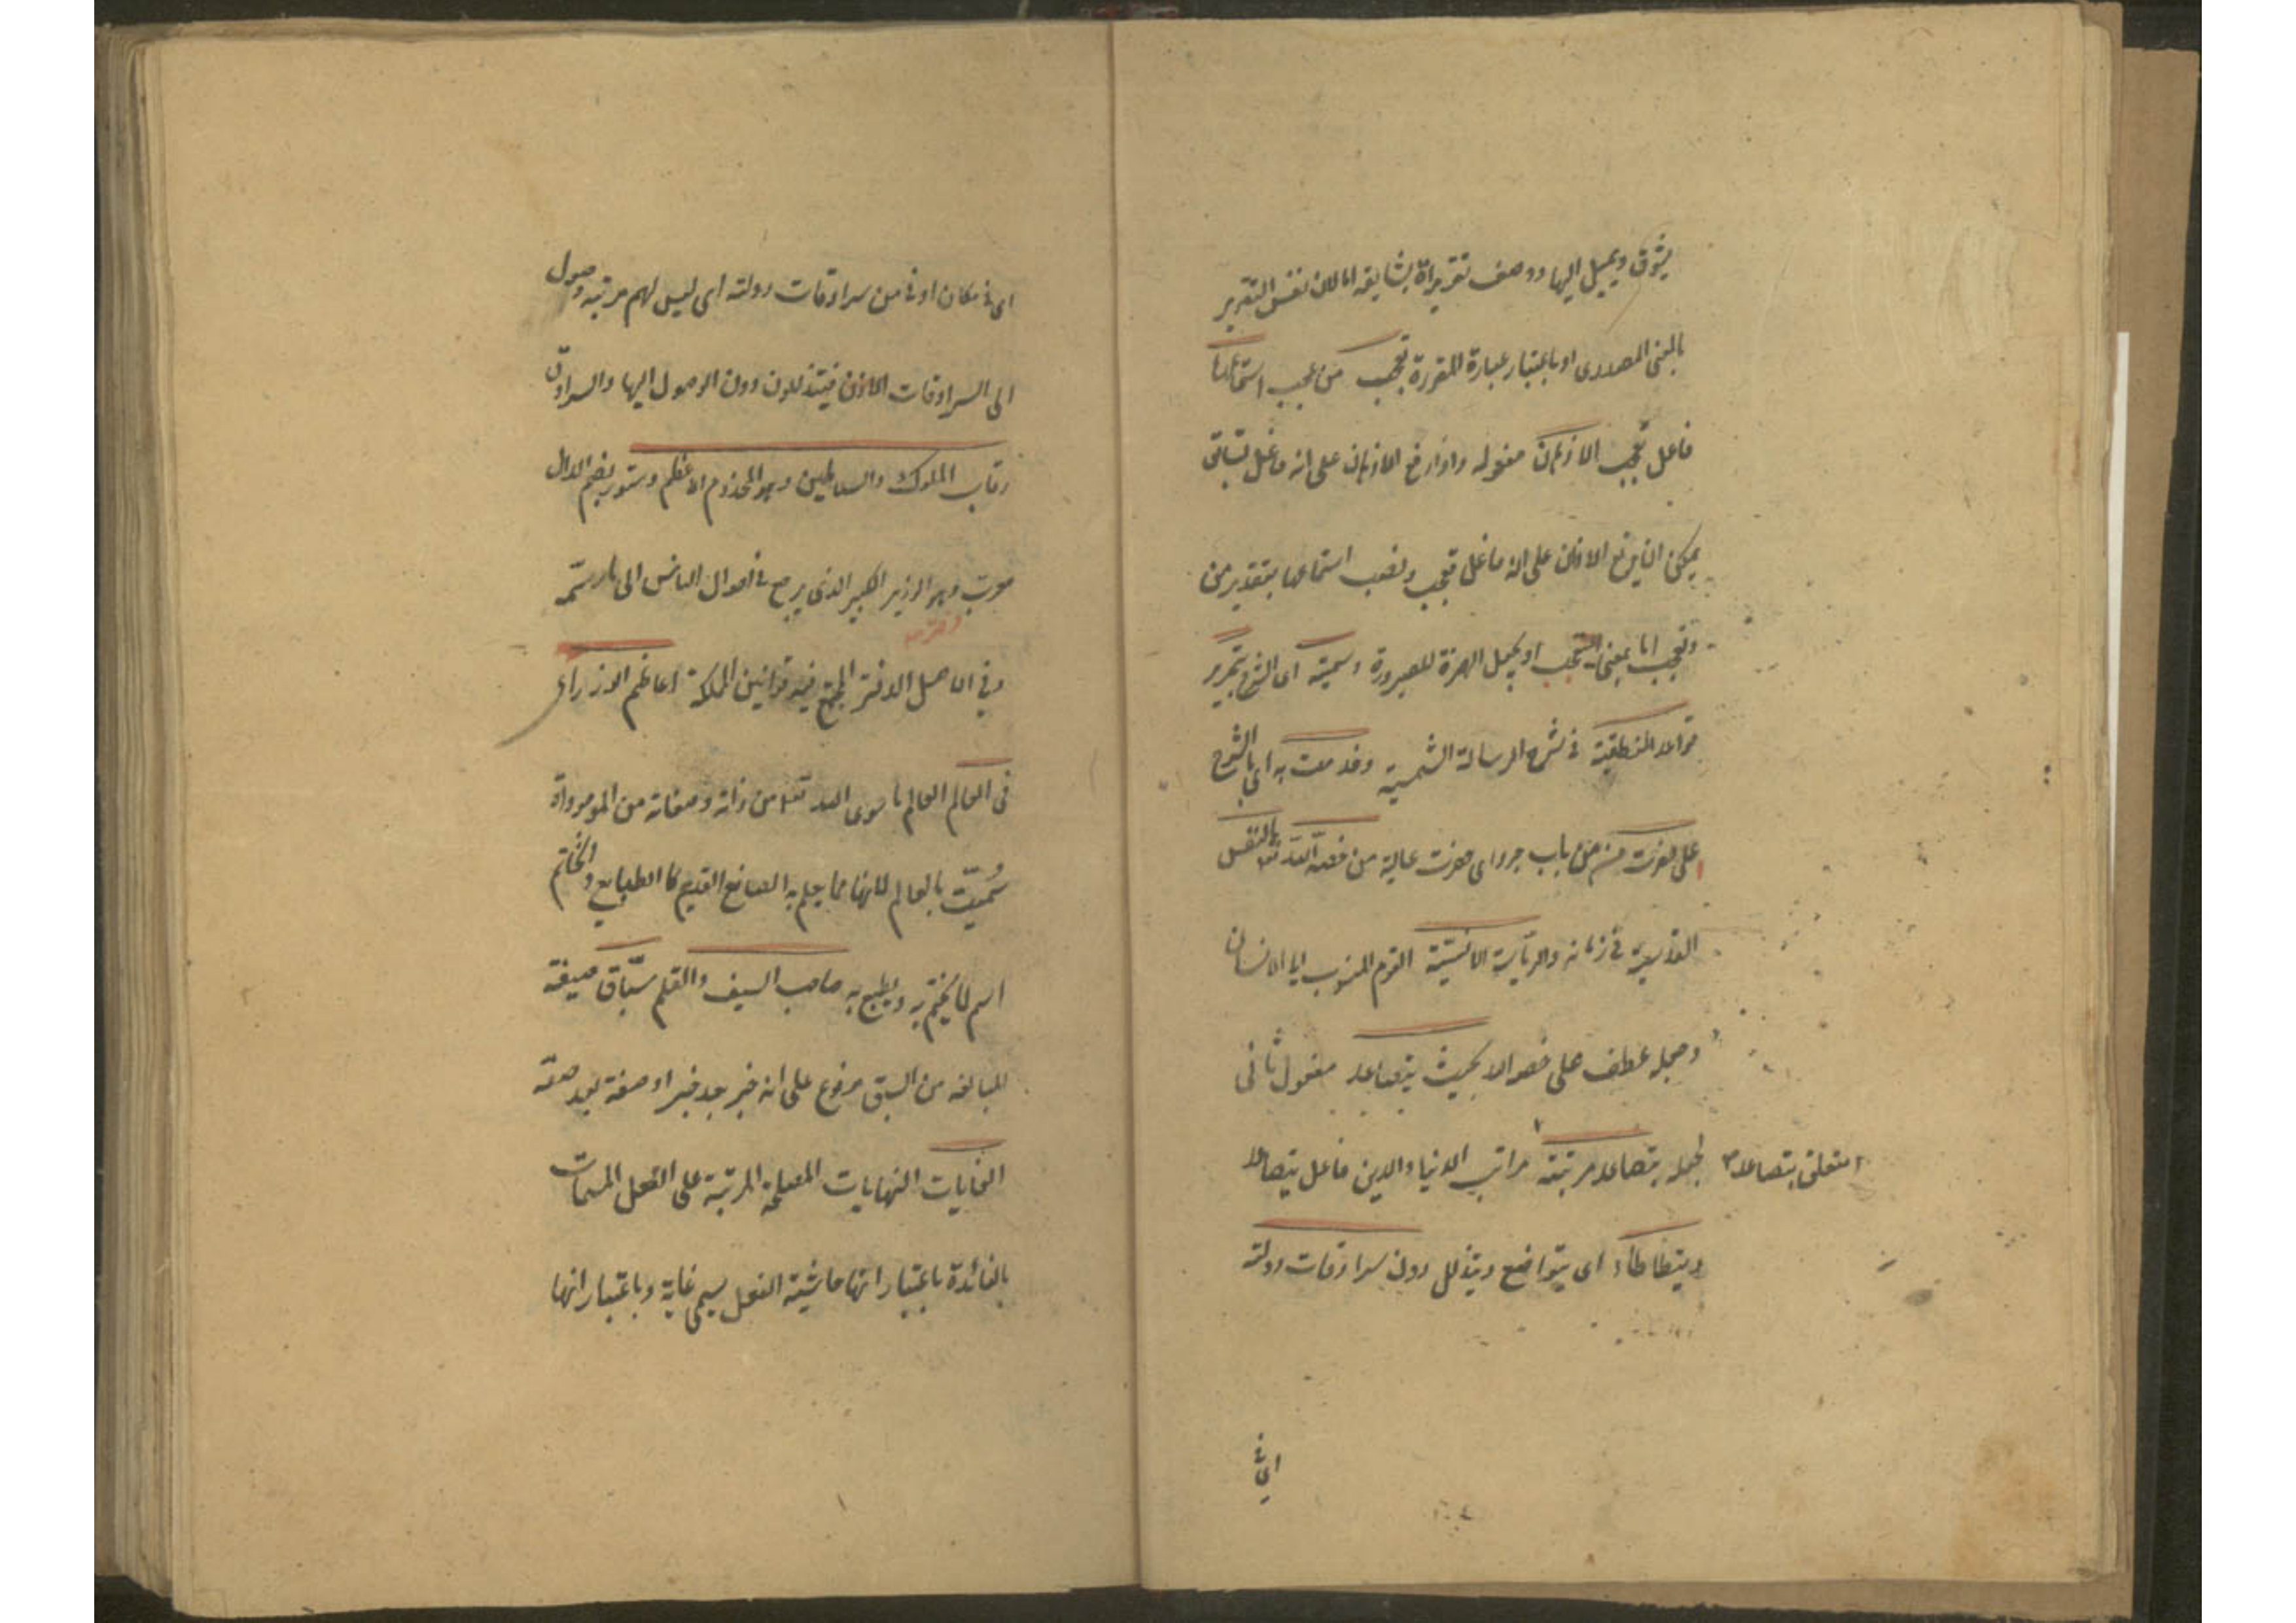 يشوق ويميل اليها ووصف تقريراة يشايقه اما لان نفس التقرير
بالمعنى المصدرى او باعتبار عبارة المقررة تعجب من عجب استماعها
فاعل تعجب الاذهان مفعوله واذا رفع الاذهان على انه فاعل
يمكن ان يرفع الاذان على انه فاعل تعجب ونصب استماعها بتقدير من
وتعجب اما بمعنى التعجب او يجعل الهمزة للصيرورة وسميته اى الشرح بتحرير
قواعد المنطقية فى شرح الرسالة الشمسية وخدمت به اى بالشرح
على حضرت من باب جرد اى حضرت عالية من خصه الله تعالى بالنفس
القدسية فى زمانه والرياسة الانسية القوم المنسوب الى الانسان
وجعله عطف على خصه الا بحيث يتصاعد مفعول ثانى
لجعله يتصاعد مرتبته مراتب الدنيا والدين فاعل يتصاعد
متعلق بتصاعد
ويتطاطأ اى يتواضع ويتذلل دون سرادقات دولته
اى فى
اى فى مكان ادنى من سرادقات دولته اى ليس لهم مرتبه وصول
الى السرادقات فيتذللون دون الوصول اليها والسرادق
رقاب الملوك والسلاطين وهو المخدوم الاعظم دستور بضم الدال
معرب وهو الوزير الكبير الذى يرجع فى احوال الناس الى ما رسمه
وفى الاصل الدفتر المجتمع فيه قوانين المملكة اعاظم الوزراء
فى العالم العالم ما سوى الله تعالى من ذاته وصفاته من الموجوداة
سميت بالعالم لانها مما يعلم به الصانع القديم كالطابع والخاتم
اسم لما يختم به ويطبع به صاحب السيف والقلم سباق صيغة
المبالغه من السبق مرفوع على انه خبر بعد خبر او صفة بعد صفة
الغايات النهايات المصلحة المرتبة على الفعل المسمات
بالفائدة باعتبار انها حاشية الفعل يسمى غاية وباعتبار انها